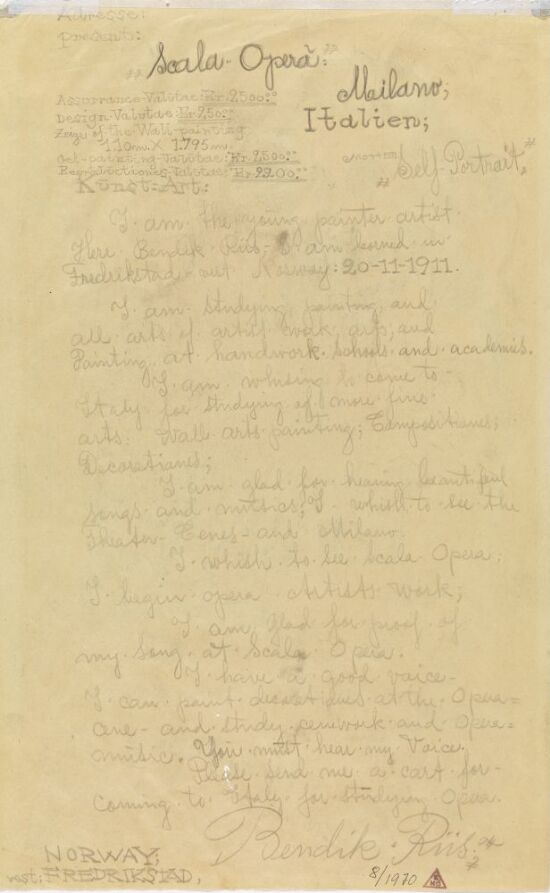 Adresse:
present:
"Scala-Opera:"
Meilano;
Italien;
Assurrance-Valutae: Kr. 2500:"
Design-Valutae: Kr. 250:"
Zeige of the Wall-painting
1.10 m. X 1.795 m.
Oel-painting-Valutae: Kr. 2,500:"
Reproductiones-Valutas: Kr. 2200:"
"Self-Portrait,"
Kunst-Art:
I am the young painter artist
Here Bendik Riis-I am borned in
Fredrikstad-west Norway: 20-11-1911.
I am studying painting and
all arts of artist work, arts, and
Painting at handwork schools and academies.
I am whising to come to
Italy for studying of more fine
arts: Wall-arts-painting; Compositiones;
Decorationes;
I am glad for hearing beautiful
songs and mutsics; I whish to see the
Theater- and Milano.
I whish to see Scala Opera.
I begin opera Artists work;
I am glad for proof of
my song at Scala Opera.
I have a good voice-
I can paint decorationes at the Opera=
and study and Opera=
mutsic. You must hear my Voice
Please send me a cart for-
coming to Italy for studying Opera.
Bendik Riis:"
NORWAY;
west: FREDRIKSTAD,
8/1970